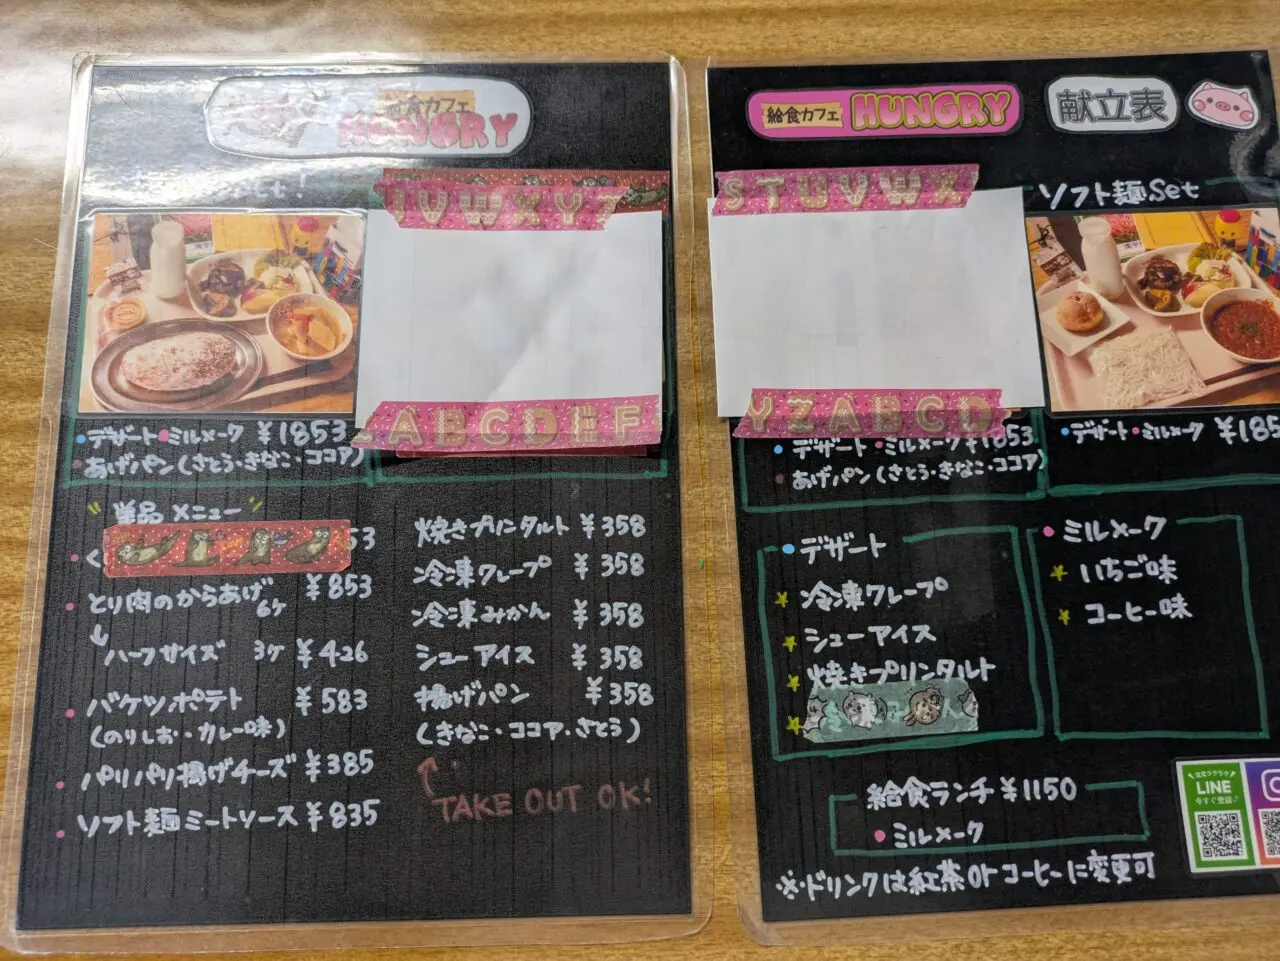 給食カフェ
HUNGRY
et!
UVWXYZ
ABCDEF
デザート ミルメーク ¥1853
あげパン(さとう・きなこ・ココア)
単品メニュー
53
とり肉のからあげ 6ケ ¥853
ハーフサイズ 3ケ ¥426
バケツポテト ¥583
(のりしお・カレー味)
パリパリ揚げチーズ ¥385
ソフト麺ミートソース ¥835
焼きプリンタルト ¥358
冷凍クレープ ¥358
冷凍みかん ¥358
シューアイス ¥358
揚げパン ¥358
(きなこ・ココア・さとう)
TAKE OUT OK!
給食カフェ HUNGRY
献立表
STUVWX
YZABCD
デザート・ミルメーク ¥1853
あげパン(さとう・きなこ・ココア)
ソフト麺Set
デザート・ミルメーク ¥185
デザート
冷凍クレープ
シューアイス
焼きプリンタルト
ミルメーク
いちご味
コーヒー味
給食ランチ ¥1150
ミルメーク
※ドリンクは紅茶orコーヒーに変更可
LINE
今すぐ登録♪